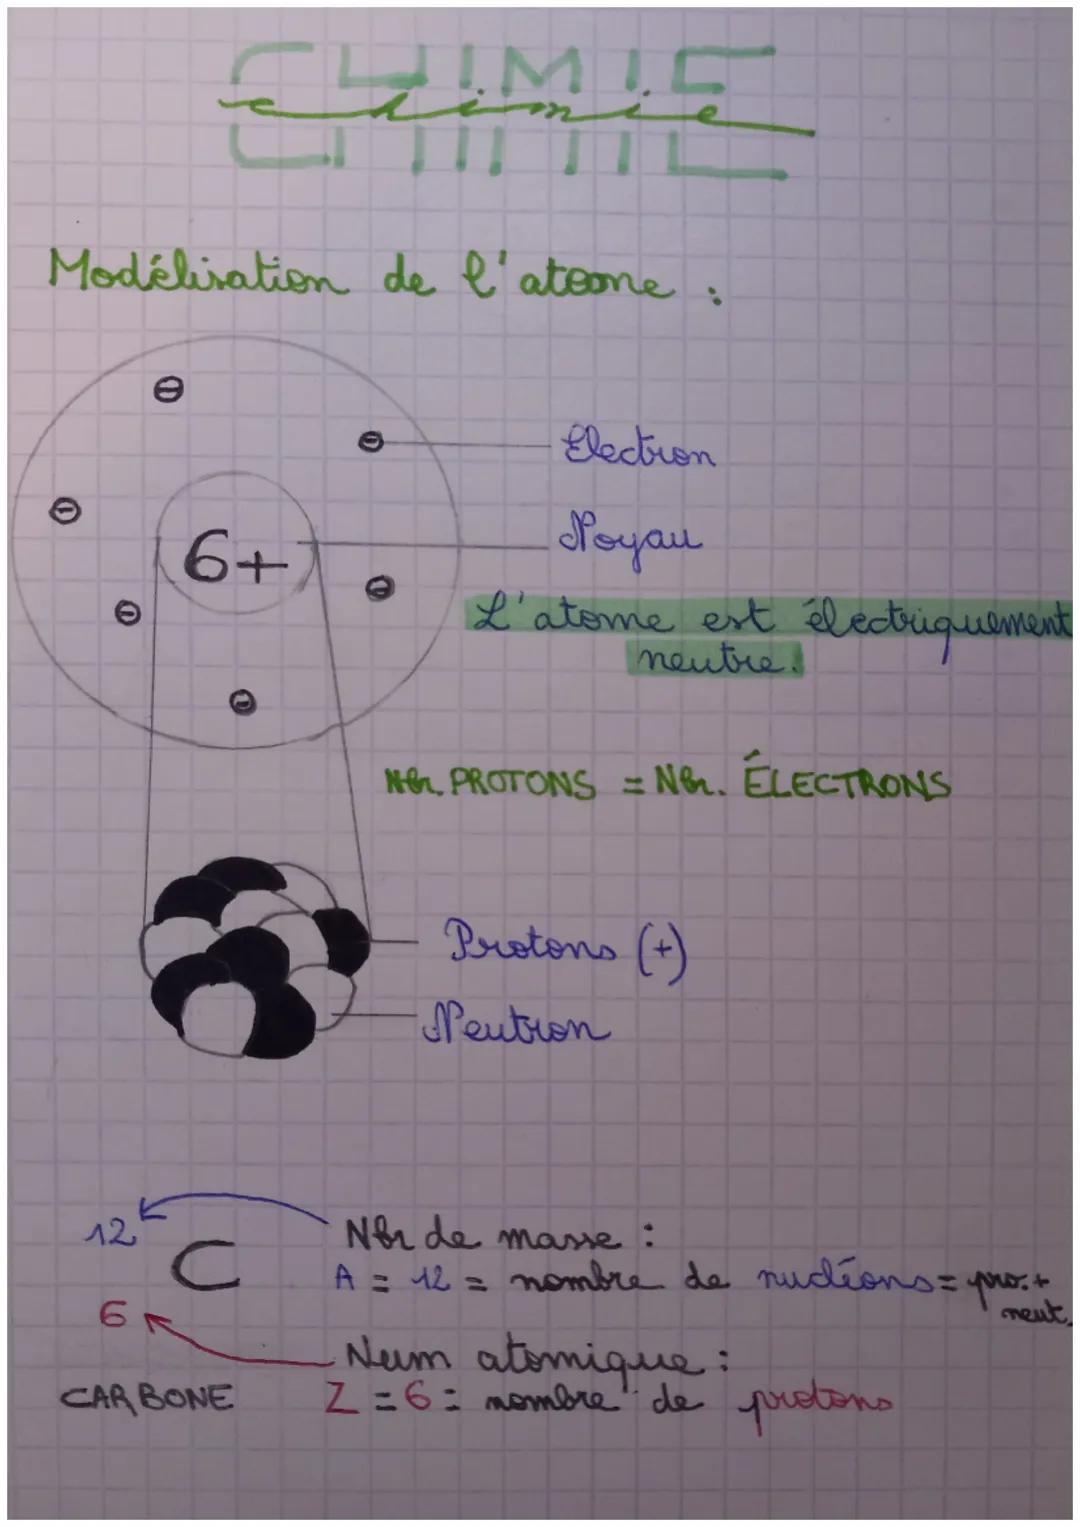 CHIMIE
chimie
Modélisation de l'atome :
Electron
Noyau
6+
L'atome est électriquement
neutre.
Nbr. PROTONS = Nbr. ÉLECTRONS
Protons (+)
Neutron
12
Nbr de masse :
C
A = 12 = nombre de nucléons = pro. +
neut.
6
Num atomique :
CARBONE Z = 6 = nombre de protons